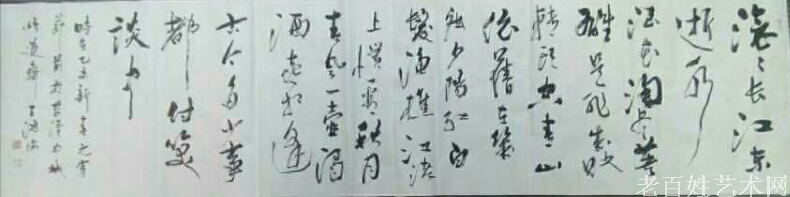 滚滚长江东
逝水
浪花淘尽英
雄是非成败
转头空青山
依旧在几
度夕阳红白
髮渔樵江渚
上惯看秋月
春风一壶浊
酒喜相逢
古今多少事
都付笑
谈中
時在乙未新春元宵
节前於
老百姓艺术网